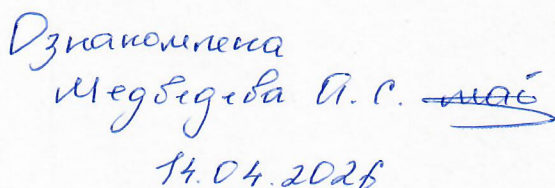 Ознакомлена
Медведева А. С.
14.04.2026